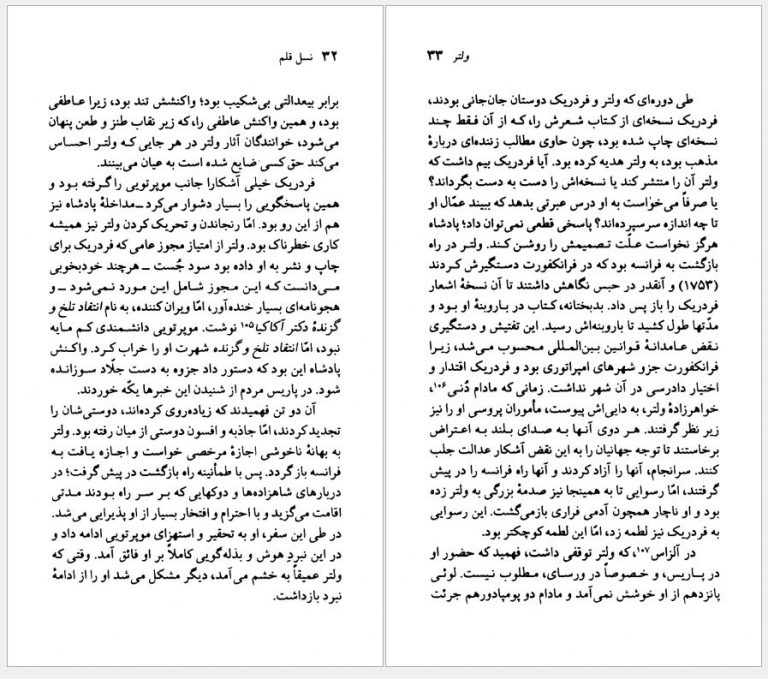 ۳۲ نسل قلم
برابر بیعدالتی بی‌شکیب بود؛ واکنشش تند بود، زیرا عاطفی
بود، و همین واکنش عاطفی را، که زیر نقاب طنز و طعن پنهان
می‌شود، خوانندگان آثار ولتر در هر جایی که ولتر احساس
می‌کند حق کسی ضایع شده است به عیان می‌بینند.
فردریک خیلی آشکارا جانب موپرتویی را گرفته بود و
همین پاسخگویی را بسیار دشوار می‌کرد ــ مداخلهٔ پادشاه نیز
هم از این رو بود. امّا رنجاندن و تحریک کردن ولتر نیز همیشه
کاری خطرناک بود. ولتر از امتیاز مجوز عامی که فردریک برای
چاپ و نشر به او داده بود سود جُست ــ هرچند خودبخوبی
می‌دانست که این مجوز شامل این مورد نمی‌شود ــ و
هجونامه‌ای بسیار خنده‌آور، امّا ویران کننده، به نام انتقاد تلخ و
گزندهٔ دکتر آکاکیا۱۰۵ نوشت. موپرتویی دانشمندی کم مایه
نبود، امّا انتقاد تلخ و گزنده شهرت او را خراب کرد. واکنش
پادشاه این بود که دستور داد جزوه به دست جلّاد سوزانده
شود. در پاریس مردم از شنیدن این خبرها یکّه خوردند.
آن دو تن فهمیدند که زیاده‌روی کرده‌اند، دوستی‌شان را
تجدید کردند، امّا جاذبه و افسون دوستی از میان رفته بود. ولتر
به بهانهٔ ناخوشی اجازهٔ مرخصی خواست و اجازه یافت به
فرانسه باز گردد. پس با طمأنینه راه بازگشت در پیش گرفت؛ در
دربارهای شاهزاده‌ها و دوکهایی که بر سر راه بودند مدتی
اقامت می‌گزید و با احترام و افتخار بسیار از او پذیرایی می‌شد.
در طی این سفر، او به تحقیر و استهزای موپرتویی ادامه داد و
در این نبردِ هوش و بذله‌گویی کاملاً بر او فائق آمد. وقتی که
ولتر عمیقاً به خشم می‌آمد، دیگر مشکل می‌شد او را از ادامهٔ
نبرد بازداشت.
ولتر ۳۳
طی دوره‌ای که ولتر و فردریک دوستان جان‌جانی بودند،
فردریک نسخه‌ای از کتاب شعرش را، که از آن فقط چند
نسخه‌ای چاپ شده بود، چون حاوی مطالب زننده‌ای دربارهٔ
مذهب بود، به ولتر هدیه کرده بود. آیا فردریک بیم داشت که
ولتر آن را منتشر کند یا نسخه‌اش را دست به دست بگرداند؟
یا صرفاً می‌خواست به او درس عبرتی بدهد که ببیند عمّال او
تا چه اندازه سرسپرده‌اند؟ پاسخی قطعی نمی‌توان داد؛ پادشاه
هرگز نخواست علّت تصمیمش را روشن کند. ولتر در راه
بازگشت به فرانسه بود که در فرانکفورت دستگیرش کردند
(۱۷۵۳) و آنقدر در حبس نگاهش داشتند تا آن نسخهٔ اشعار
فردریک را باز پس داد. بدبختانه، کتاب در باروبنهٔ او بود و
مدّتها طول کشید تا باروبنه‌اش رسید. این تفتیش و دستگیری
نقض عامدانهٔ قوانین بین‌المللی محسوب می‌شد، زیرا
فرانکفورت جزو شهرهای امپراتوری بود و فردریک اقتدار و
اختیار دادرسی در آن شهر نداشت. زمانی که مادام دُنی۱۰۶،
خواهرزادهٔ ولتر، به دایی‌اش پیوست، مأموران پروسی او را نیز
زیر نظر گرفتند. هر دوی آنها به صدای بلند به اعتراض
برخاستند تا توجه جهانیان را به این نقض آشکار عدالت جلب
کنند. سرانجام، آنها را آزاد کردند و آنها راه فرانسه را در پیش
گرفتند، امّا رسوایی تا به همینجا نیز صدمهٔ بزرگی به ولتر زده
بود و او ناچار همچون آدمی فراری بازمی‌گشت. این رسوایی
به فردریک نیز لطمه زد، امّا این لطمه کوچکتر بود.
در آلزاس۱۰۷، که ولتر توقفی داشت، فهمید که حضور او
در پاریس، و خصوصاً در ورسای، مطلوب نیست. لوئی
پانزدهم از او خوشش نمی‌آمد و مادام دو پومپادورهم جرئت